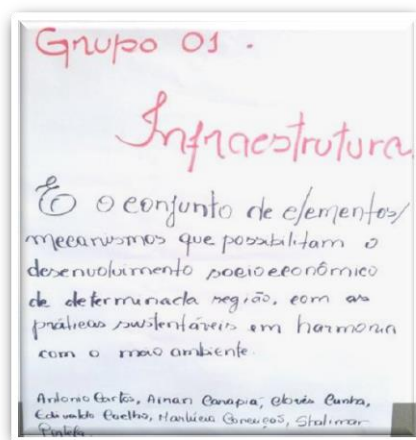 Grupo 01.
Infraestrutura
É o conjunto de elementos/
mecanismos que possibilitam o
desenvolvimento socioeconômico
de determinada região, com as
práticas sustentáveis em harmonia
com o meio ambiente.
Antonio Carlos, Clovis Cunha,
Edivaldo Coelho,